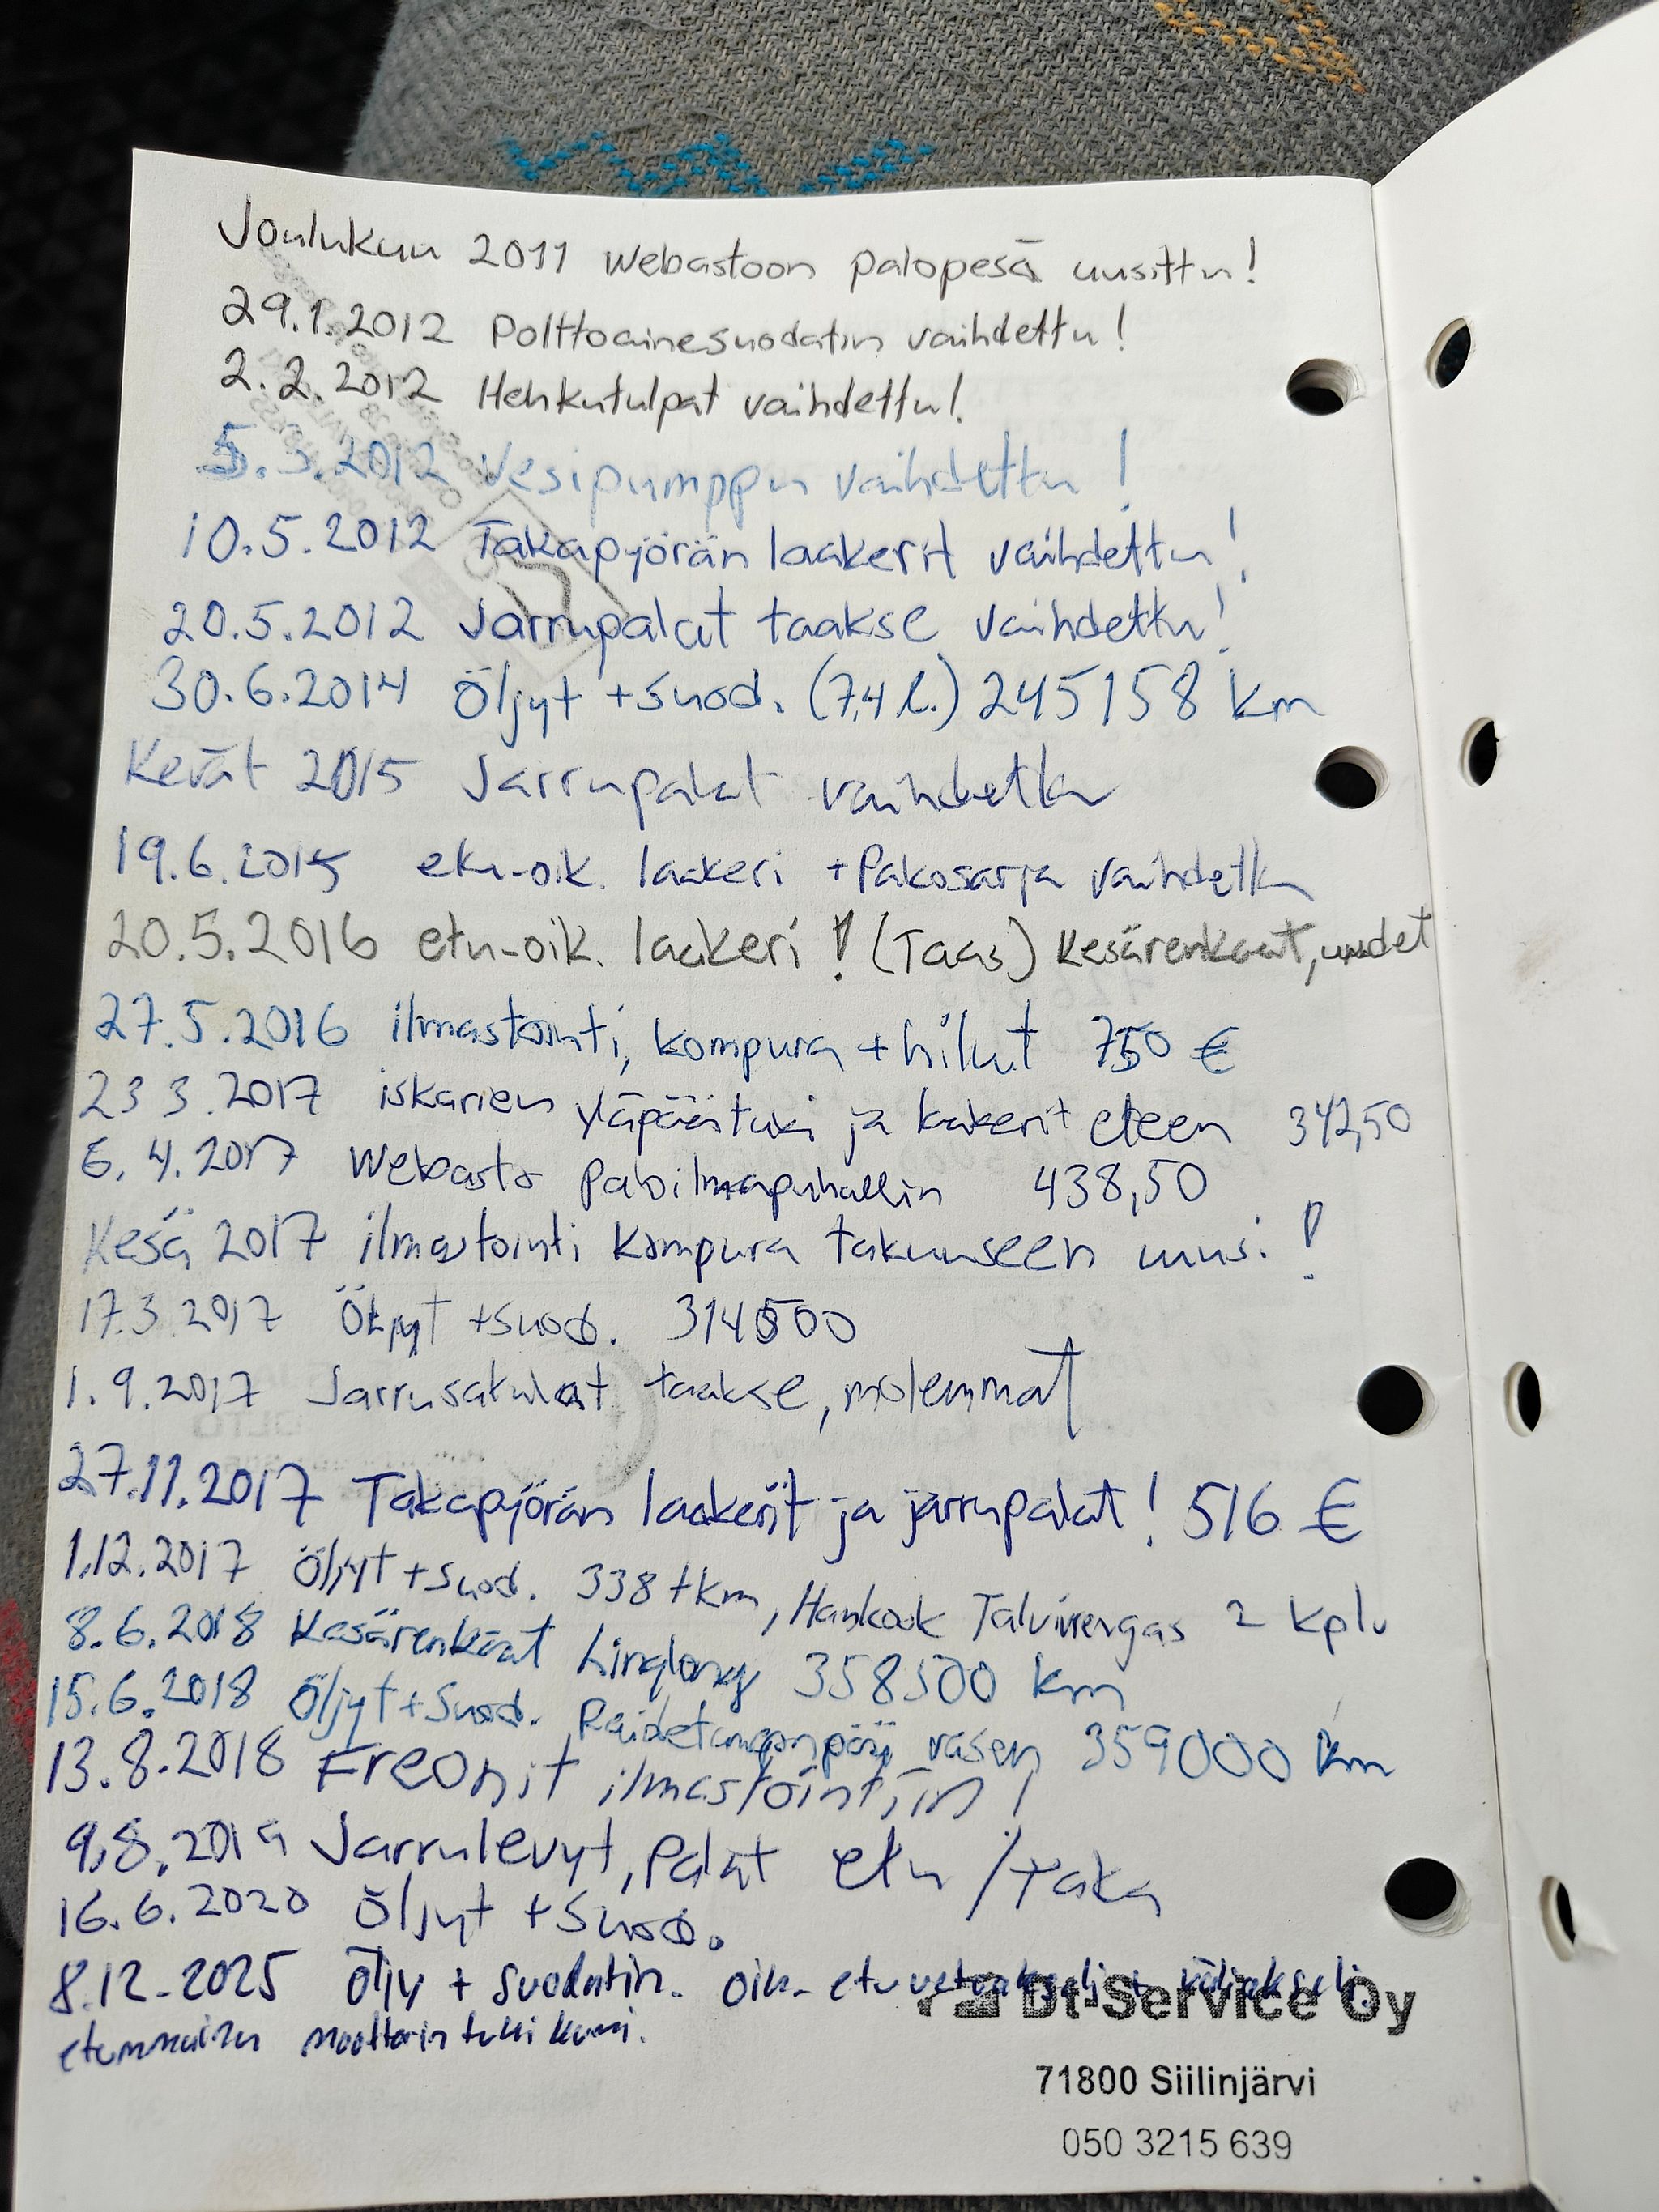 Joulukuu 2011 Webastoon palopesä uusittu!
29.1.2012 Polttoainesuodatin vaihdettu!
2.2.2012 Hehkutulpat vaihdettu!
5.3.2012 Vesipumppu vaihdettu!
10.5.2012 Takapyörän laakerit vaihdettu!
20.5.2012 Jarrupalat taakse vaihdettu!
30.6.2014 Öljyt + suod. (7,4 l.) 245158 km
Kevät 2015 Jarrupalat vaihdettu
19.6.2015 etu-oik. laakeri + Pakosarja vaihdettu
20.5.2016 etu-oik. laakeri! (Taas) Kesärenkaat, uudet
27.5.2016 ilmastointi, kompura + hihnat 750 €
23 3.2017 iskarien yläpäätuki ja laakerit eteen 342,50
6.4.2017 Webasto paloilmapuhallin 438,50
Kesä 2017 ilmastointi kompura takuuseen uus.!
17.3.2017 Öljyt + suod. 314500
1.9.2017 Jarrusatulat taakse, molemmat
27.11.2017 Takapyörän laakerit ja jarrupalat! 516 €
1.12.2017 Öljyt + suod. 338 tkm, Hankook Talvirengas 2 kpl
8.6.2018 Kesärenkaat Linglong 358500 km
15.6.2018 Öljyt + Suod. Raidetangonpää vasen 359000 km
13.8.2018 Freonit ilmastointiin!
9.8.2019 Jarrulevyt, Palat etu / taka
16.6.2020 Öljyt + Suod.
8.12-2025 Öljy + suodatin. oik-etuvetoakseli + väliakseli.
etummainen moottorin tukikumi.
Dt-Service Oy
71800 Siilinjärvi
050 3215 639